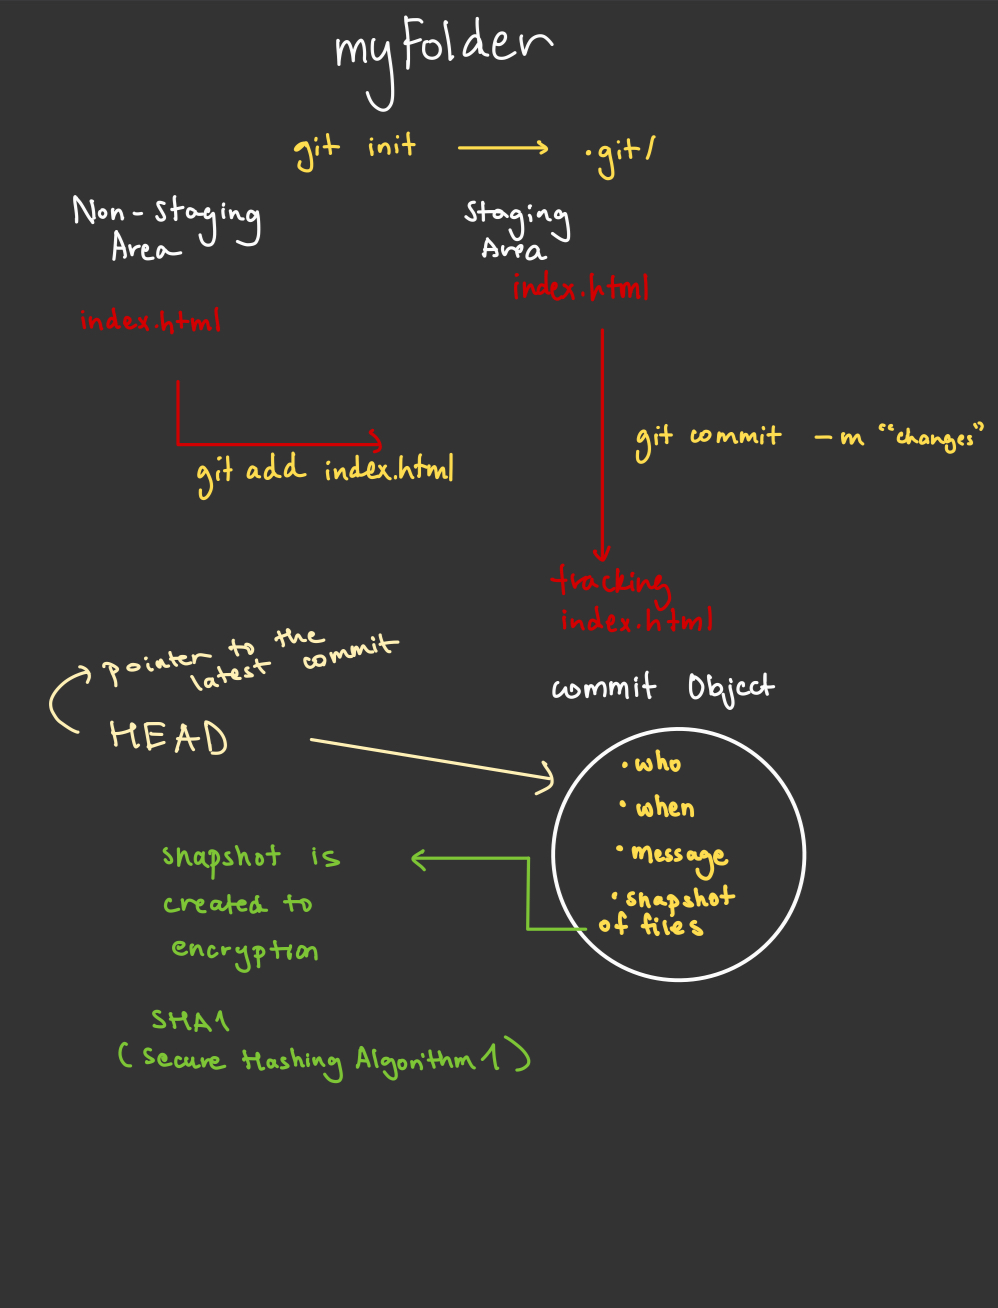 myFolder
git init → .git/
Non-Staging
Area
Staging
Area
index.html
index.html
git add index.html
git commit -m "changes"
tracking
index.html
pointer to the
latest commit
HEAD
commit Object
• who
• when
• message
• snapshot
of files
snapshot is
created to
encryption
SHA1
(Secure Hashing Algorithm 1)